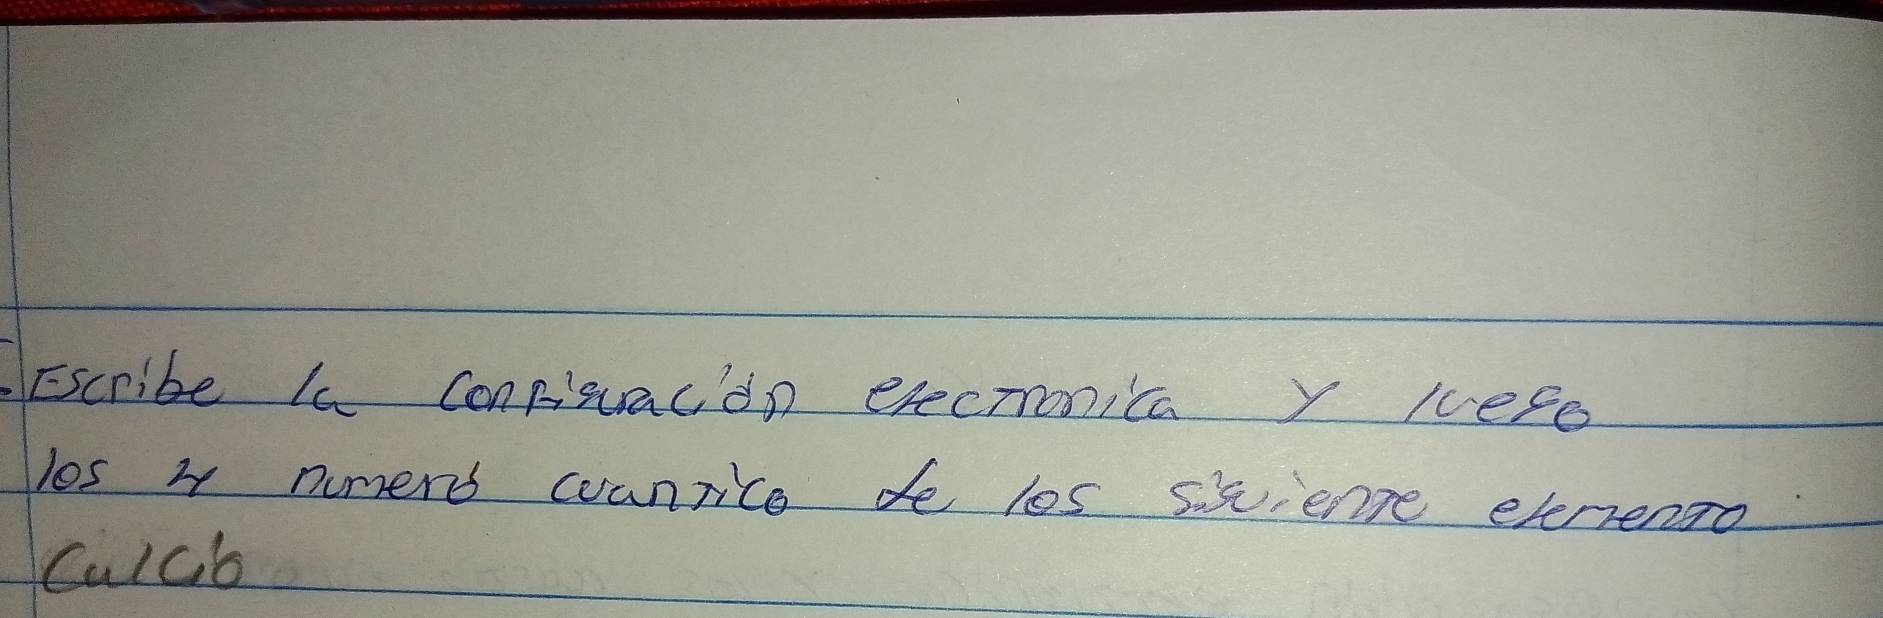 Escribe la configuración electronica y luego
los 4 numero cuantico de los siguiente elemento
Calcio